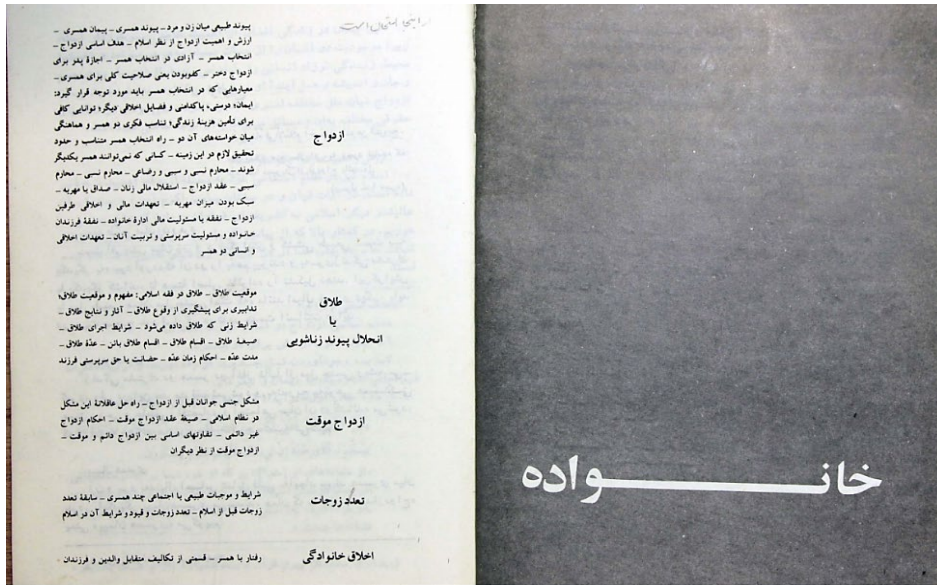 خانــــــواده
از اینجا امتحان است
ازدواج
پیوند طبیعی میان زن و مرد – پیوند همسری – پیمان همسری –
ارزش و اهمیت ازدواج از نظر اسلام – هدف اساسی ازدواج –
انتخاب همسر – آزادی در انتخاب همسر – اجازهٔ پدر برای
ازدواج دختر – کفوبودن یعنی صلاحیت کلی برای همسری –
معیارهایی که در انتخاب همسر باید مورد توجه قرار گیرد:
ایمان؛ درستی، پاکدامنی و فضایل اخلاقی دیگر؛ توانایی کافی
برای تأمین هزینهٔ زندگی؛ تناسب فکری دو همسر و هماهنگی
میان خواسته‌های آن دو – راه انتخاب همسر متناسب و حدود
تحقیق لازم در این زمینه – کسانی که نمی‌توانند همسر یکدیگر
شوند – محارم نسبی و سببی و رضاعی – محارم نسبی – محارم
سببی – عقد ازدواج – استقلال مالی زنان – صداق یا مهریه –
سبک بودن میزان مهریه – تعهدات مالی و اخلاقی طرفین
ازدواج – نفقه یا مسئولیت مالی ادارهٔ خانواده – نفقهٔ فرزندان
خانواده و مسئولیت سرپرستی و تربیت آنان – تعهدات اخلاقی
و انسانی دو همسر
طلاق
یا
انحلال پیوند زناشویی
موقعیت طلاق – طلاق در فقه اسلامی: مفهوم و موقعیت طلاق؛
تدابیری برای پیشگیری از وقوع طلاق – آثار و نتایج طلاق –
شرایط زنی که طلاق داده می‌شود – شرایط اجرای طلاق –
صیغهٔ طلاق – اقسام طلاق – اقسام طلاق بائن – عدّهٔ طلاق –
مدت عدّه – احکام زمان عدّه – حضانت یا حق سرپرستی فرزند
ازدواج موقت
مشکل جنسی جوانان قبل از ازدواج – راه حل عاقلانهٔ این مشکل
در نظام اسلامی – صیغهٔ عقد ازدواج موقت – احکام ازدواج
غیر دائمی – تفاوتهای اساسی بین ازدواج دائم و موقت –
ازدواج موقت از نظر دیگران
تعدد زوجات
شرایط و موجبات طبیعی یا اجتماعی چند همسری – سابقهٔ تعدد
زوجات قبل از اسلام – تعدد زوجات و قیود و شرایط آن در اسلام
اخلاق خانوادگی
رفتار با همسر – قسمتی از تکالیف متقابل والدین و فرزندان